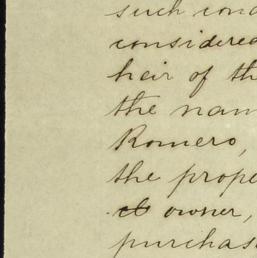 such con
considered
heir of th
the nam
Romero,
the prope
owner,
purchas